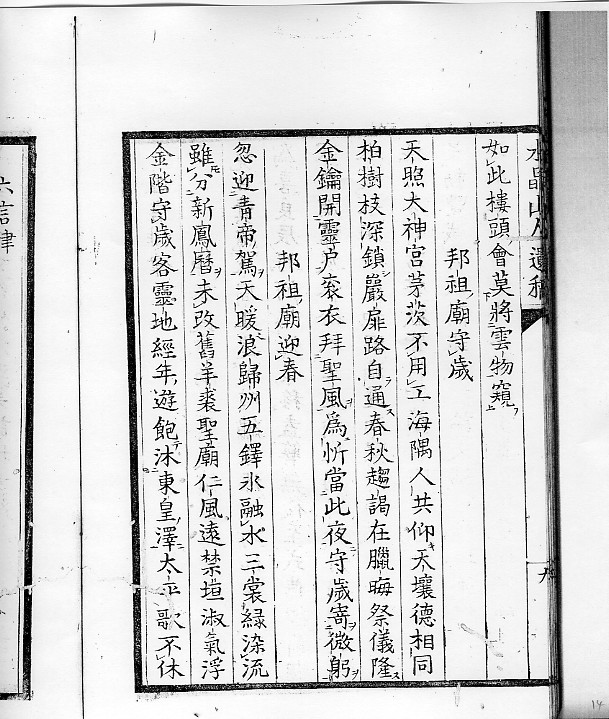 如此樓頭會莫將雲物窺
邦祖廟守歲
天照大神宮茅茨不用工海隅人共仰天壤德相同
柏樹枝深鎖嚴扉路自通春秋趨謁在臘晦祭儀隆
金鑰開靈戶袞衣拜聖風爲忻當此夜守歲寄微躬
邦祖廟迎春
忽迎青帝駕天暖浪歸州五鐸氷融水三裳綠染流
雖分新鳳曆未改舊羊裘聖廟仁風遠禁垣淑氣浮
金階守歲客靈地經年遊飽沐東皇澤太平歌不休
六言律